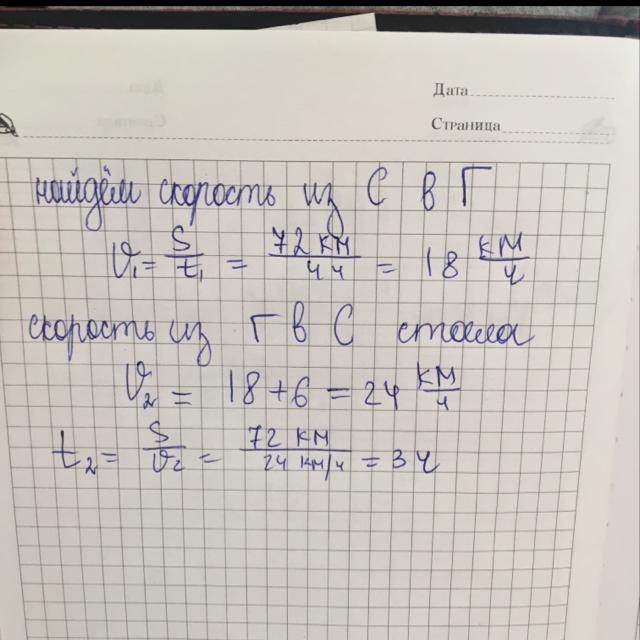 Дата
Страница
найдём скорость из С в Г
V₁ = S/t₁ = 72 км/4 ч = 18 км/ч
скорость из Г в С стала
V₂ = 18 + 6 = 24 км/ч
t₂ = S/V₂ = 72 км/24 км/ч = 3 ч